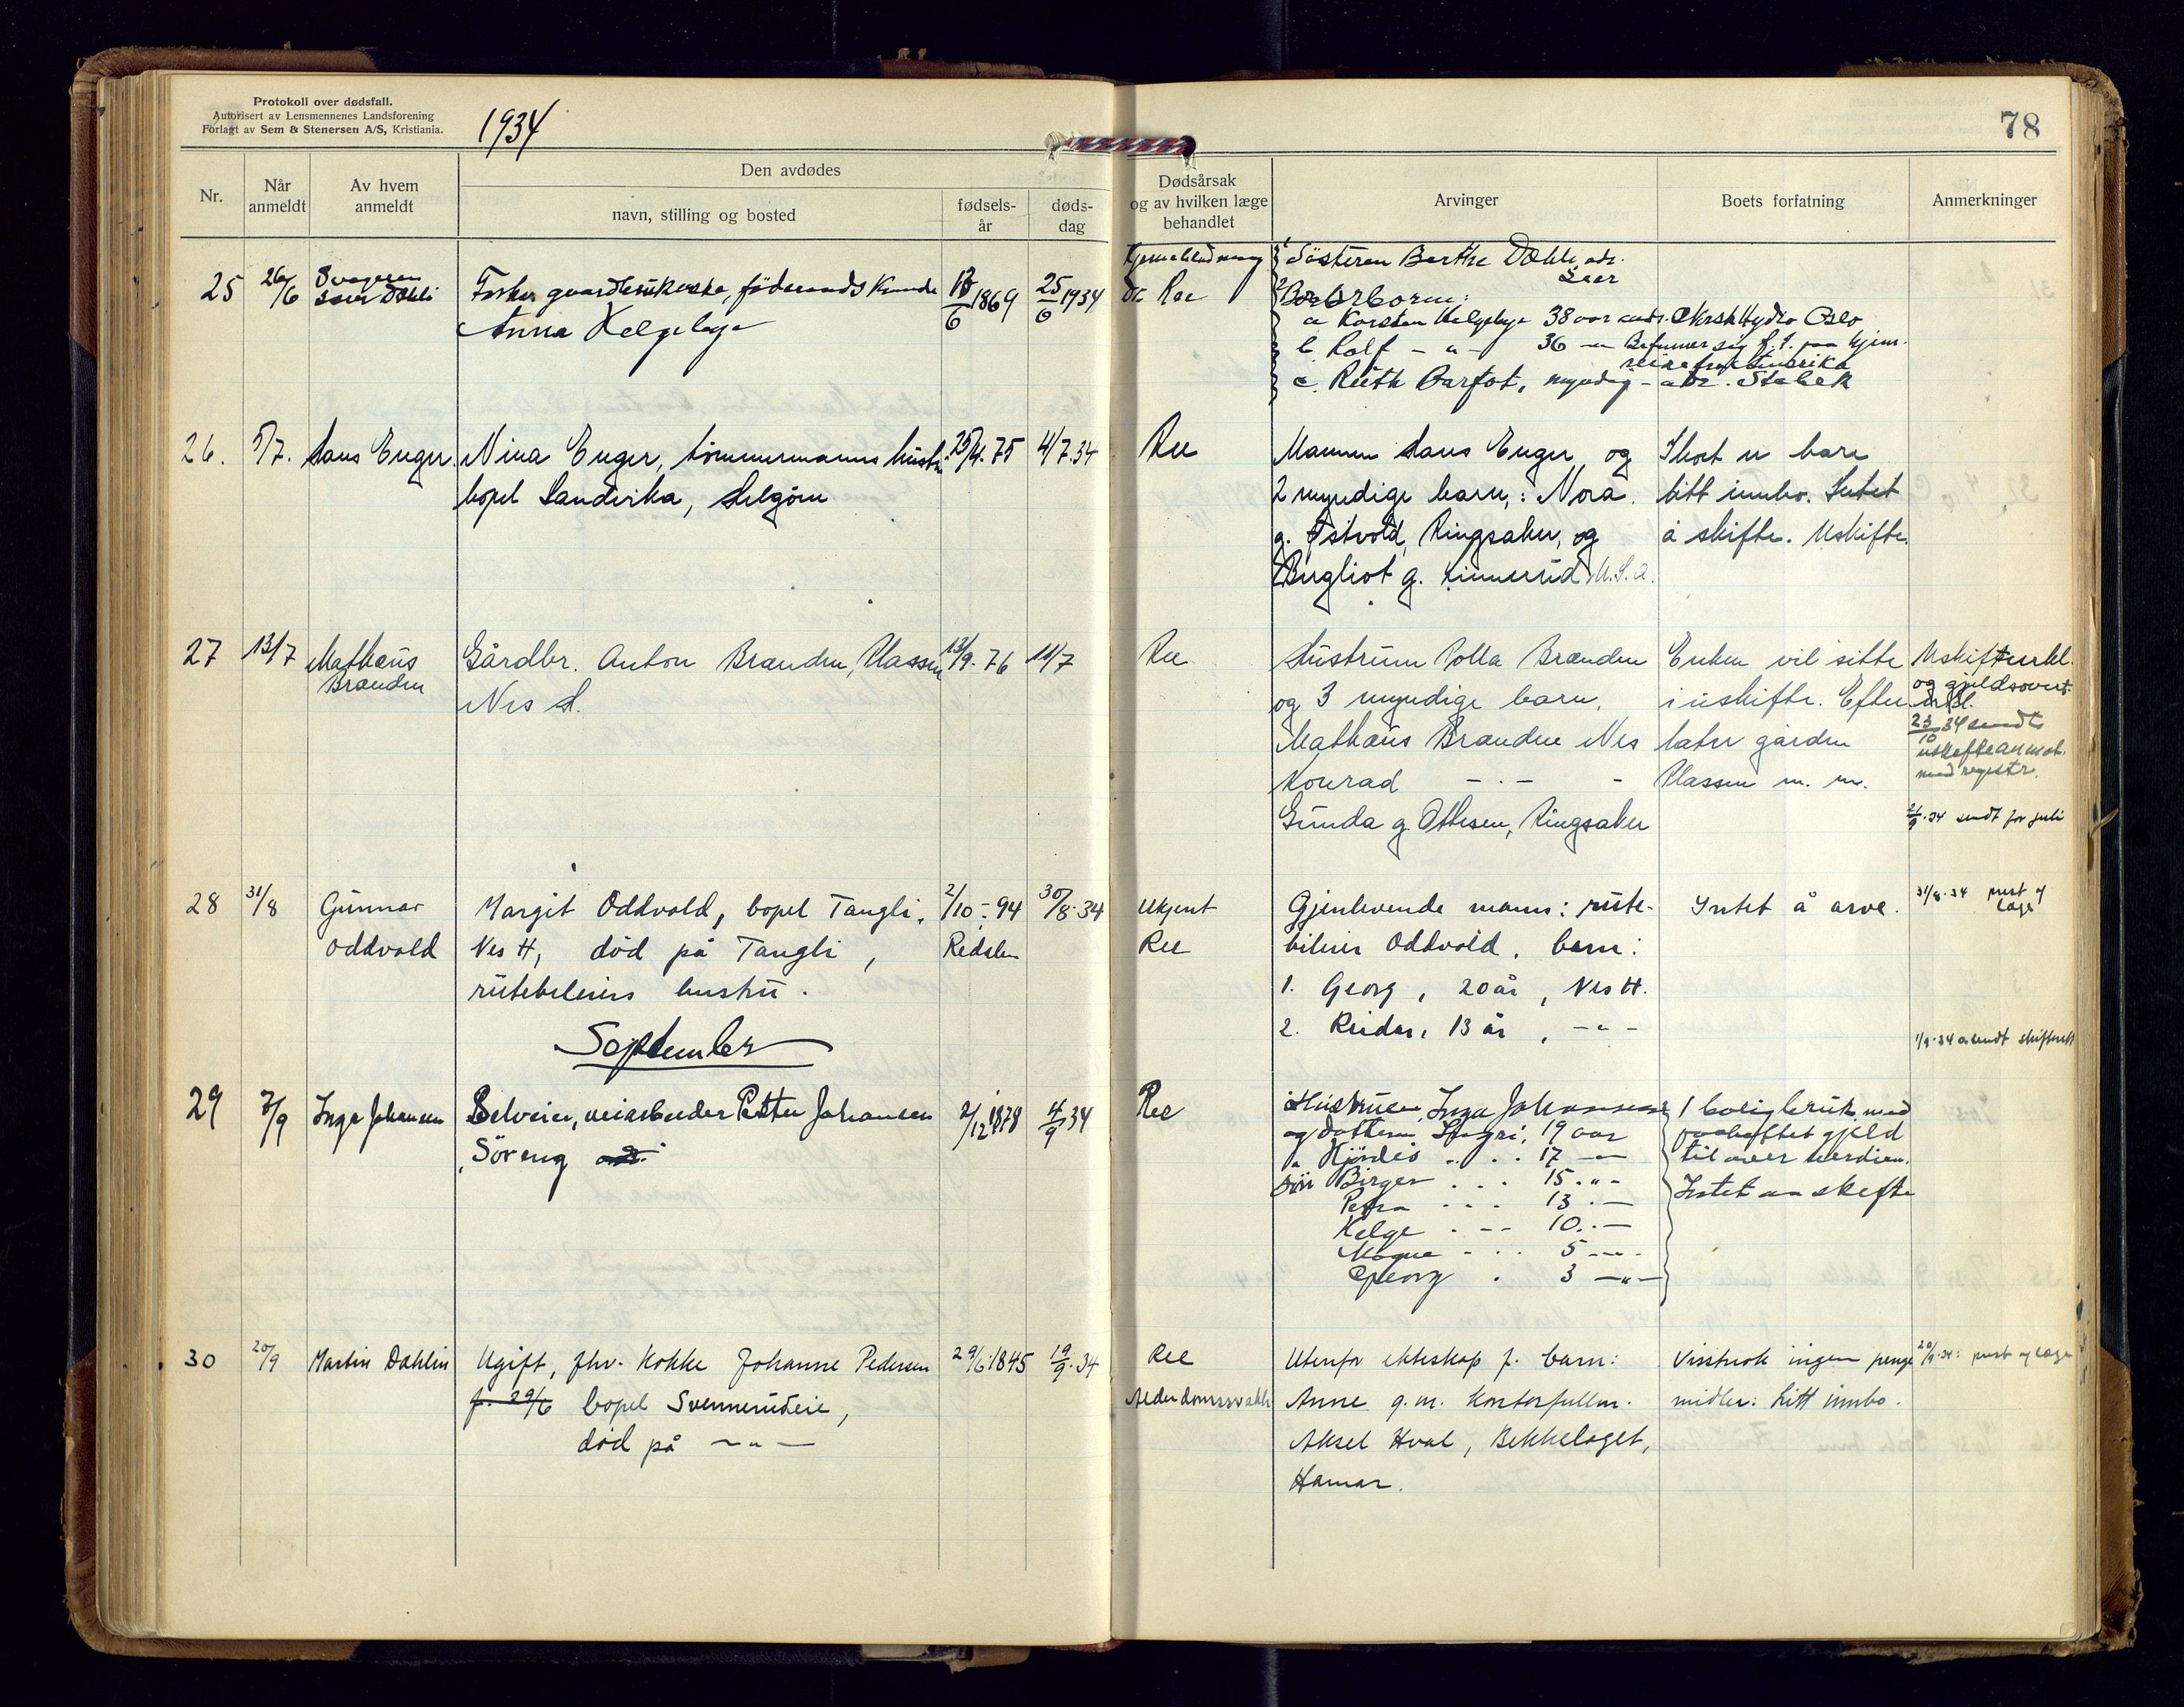 Protokoll over dødsfall.
Autorisert av Lensmennenes Landsforening
Forlagt av Sem & Stenersen A/S, Kristiania.
1934
78
Nr.
Når anmeldt
Av hvem anmeldt
Den avdødes
navn, stilling og bosted
fødsels-år
døds-dag
Dødsårsak og av hvilken læge behandlet
Arvinger
Boets forfatning
Anmerkninger
25 26/6 Svogeren Dæhli
Anna Helgeby
6 1869 25/6 1934
Dr. Ree
1 Søsteren Berthe Dæhli adr.
2 Brorbarn:
a Karsten Helgeby 38 aar adr. Norsk Hydro Oslo
b. Rolf - " - 36 - Befinner sig p. t. paa hjem-
reise fra Amerika
c. Ruth Barfot, myndig - adr. Stabek
26. 5/7. Hans Enger
Nina Enger, tømmermanns hustru
bopel Sandvika, Helgøen
25/4. 75 4/7.34
Ree
Mannen Hans Enger og
2 myndige barn,: Nora
g. Østvold, Ringsaker, og
Bergliot g. U.S.A.
I boet er bare
litt innbo. Intet
å skifte. Uskifte.
27 13/7 Mathæus
Brænden
Gårdbr. Anton Brænden, Plassen
Nes H.
13/9. 76 11/7
Ree
Hustruen Polla Brænden
og 3 myndige barn,
Mathæus Brænden Nes
Konrad - . - -
Gunda g. Ottesen, Ringsaker
Enken vil sitte
i uskifte. Efter-
later gården
Plassen m. m.
Uskifteerkl.
og gjeldsovert.
erkl.
23/10 34 sendt
uskifteanmod.
med registr.
21/9.34 sendt for juli
28 31/8 Gunnar
Oddvold
Margit Oddvold, bopel Tangli,
Nes H, død på Tangli,
rutebileiers hustru.
2/10 - 94 30/8.34
Redalen
Ukjent
Ree
Gjenlevende mann: rute-
bileier Oddvold. barn:
1. Georg, 20 år, Nes H.
2. Reidar, 13 år, - " -
Intet å arve.
31/8.34 prest og
læge
1/9.34 avsendt skifterett
September
29 7/9 Inga Johansen
Selveier, veiarbeider Petter Johansen
Søreng
2/12 1878 4/9 34
Ree
Hustruen, Inga Johansen
og datteren Ingri, 19 aar
" Hjördis . . . 17 -
Sön Birger . . . 15 . " -
Petra . . . 13 . -
Helge . - - 10 . . -
Magne - . . 5 - " -
Georg . 3 - " -
1 boligbruk med
paaheftet gjeld
til over verdien.
Intet aa skifte
30 20/9 Martin Dæhlin
Ugift, fhv. Kokke Johanne Pedersen
f. 29/6 bopel Svennerudeie,
død på - " -
29/6.1845 19/9.34
Ree
Alderdomssvakh
Utenfor ekteskap f. barn:
Anne g. m. Kontorfullm.
Aksel Hval, Bekkelaget,
Hamar.
Visstnok ingen penge
midler: Litt innbo.
20/9.34: prest og læge